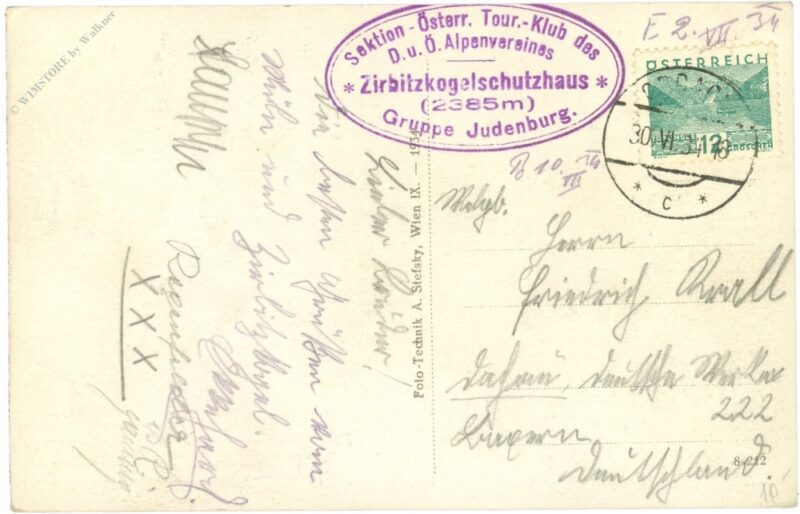 © WIMSTORE by Walkner
Sektion-Österr. Tour.-Klub des
D.u.Ö.Alpenvereines
* Zirbitzkogelschutzhaus *
(2385m)
Gruppe Judenburg.
E 2. VII. 34
ÖSTERREICH
30.VI.34 18
12
GROSCHEN
* C *
B 10. VII 34
Foto-Technik A. Stefsky, Wien IX. — 1934
Lieber Bruder!
Die besten Grüßen vom
und Zirbitzkogel.
XXX
Herrn
Friedrich Krall
Deutsche Werke
222
Bayern
Deutschland.
8-212
10